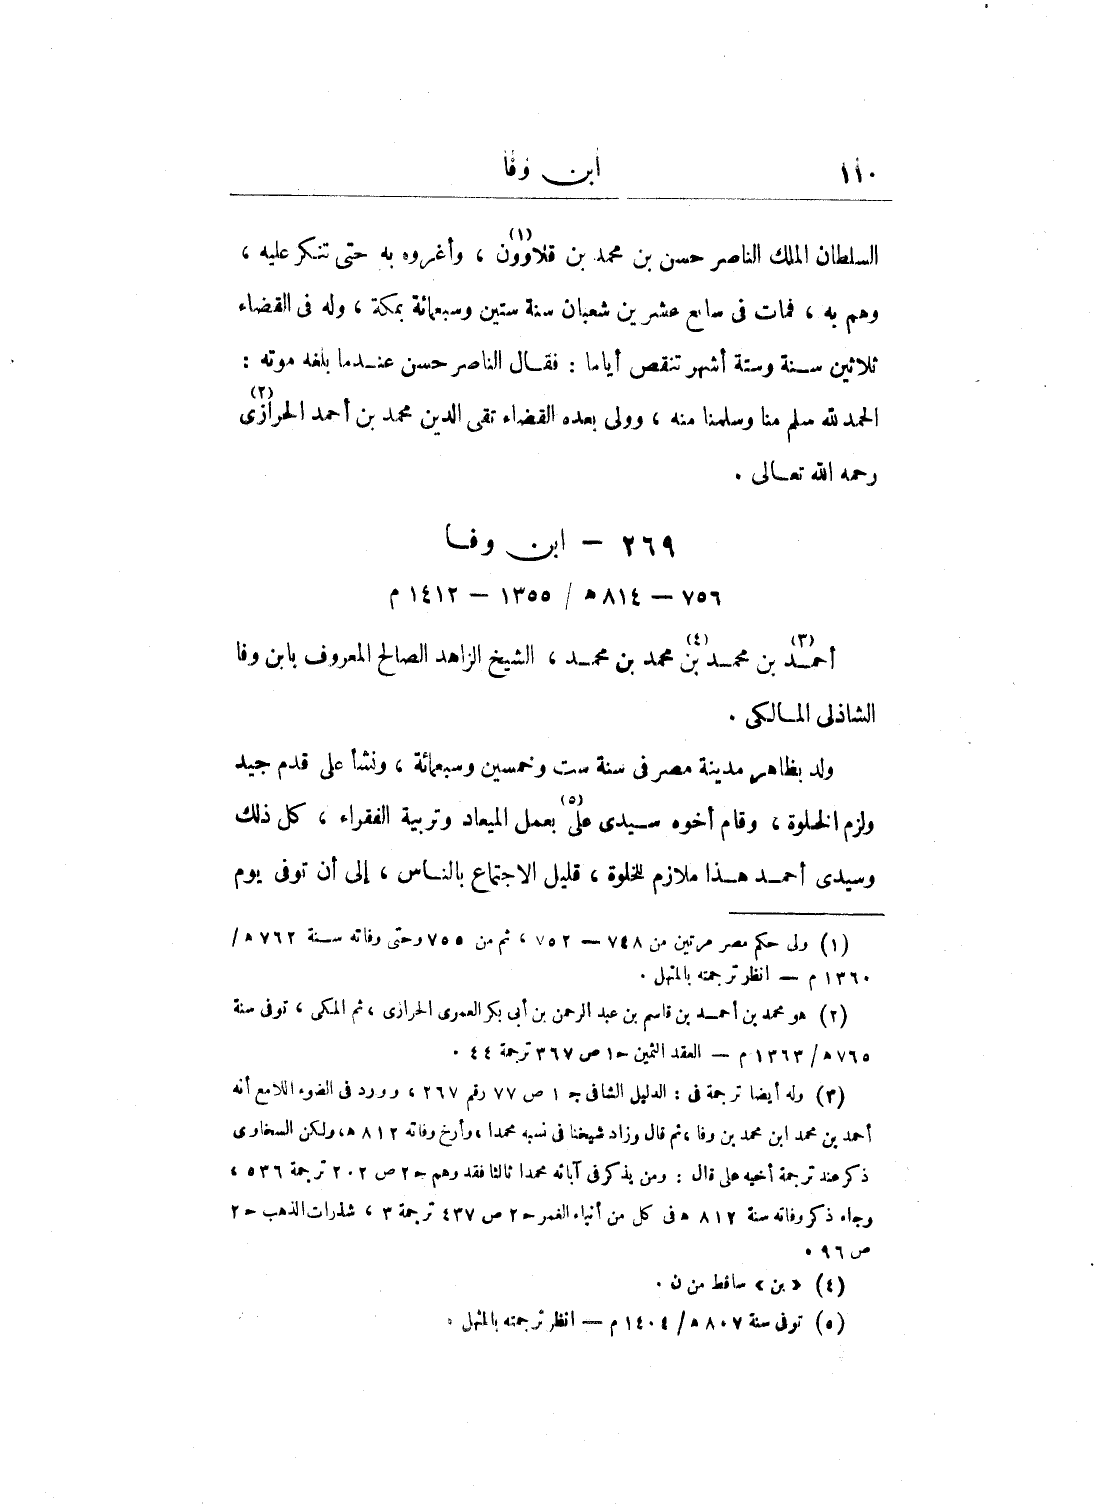 ١١٠
ابن وفا
السلطان الملك الناصر حسن بن محمد بن قلاوون (١) ، وأغروه به حتى تنكر عليه ،
وهم به ، فمات فى سابع عشرين شعبان سنة ستين وسبعمائة بمكة ، وله فى القضاء
ثلاثين سنة وستة أشهر تنقص أياما : فقال الناصر حسن عندما بلغه موته :
الحمد لله سلم منا وسلمنا منه ، وولى بعده القضاء تقى الدين محمد بن أحمد الحرازى (٢)
رحمه الله تعالى .
٢٦٩ – ابن وفا
٧٥٦ – ٨١٤ ھ / ١٣٥٥ – ١٤١٢ م
أحمد (٣) بن محمد بن (٤) محمد بن محمد ، الشيخ الزاهد الصالح المعروف بابن وفا
الشاذلى المالكى .
ولد بظاهر مدينة مصر فى سنة ست وخمسين وسبعمائة ، ونشأ على قدم جيد
ولزم الخلوة ، وقام أخوه سيدى على (٥) بعمل الميعاد وتربية الفقراء ، كل ذلك
وسيدى أحمد هذا ملازم للخلوة ، قليل الاجتماع بالناس ، إلى أن توفى يوم
(١) ولى حكم مصر مرتين من ٧٤٨ – ٧٥٢ ، ثم من ٧٥٥ وحتى وفاته سنة ٧٦٢ ھ /
١٣٦٠ م – انظر ترجمته بالمنهل .
(٢) هو محمد بن أحمد بن قاسم بن عبد الرحمن بن أبى بكر العمرى الحرازى ، ثم المكى ، توفى سنة
٧٦٥ ھ / ١٣٦٣ م – العقد الثمين ج١ ص ٣٦٧ ترجمة ٤٤ .
(٣) وله أيضا ترجمة فى : الدليل الشافى ج ١ ص ٧٧ رقم ٢٦٧ ، وورد فى الضوء اللامع أنه
أحمد بن محمد ابن محمد بن وفا ، ثم قال وزاد شيخنا فى نسبه محمدا ، وأرخ وفاته ٨١٢ ھ ، ولكن السخاوى
ذكر عند ترجمة أخيه على قال : ومن يذكر فى آبائه محمدا ثالثا فقد وهم ج٢ ص ٢٠٢ ترجمة ٥٣٦ ،
وجاء ذكر وفاته سنة ٨١٢ ھ فى كل من أنباء الغمر ج٢ ص ٤٣٧ ترجمة ٣ ، شذرات الذهب ج٢
ص ٩٦ .
(٤) « بن » ساقط من ن .
(٥) توفى سنة ٨٠٧ ھ / ١٤٠٤ م – انظر ترجمته بالمنهل .